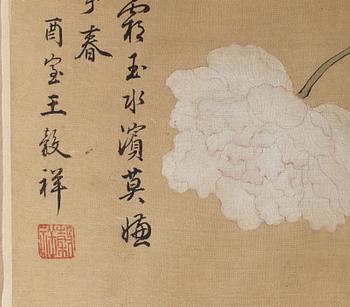 霜玉水濱莫嫌
春
酉室王穀祥